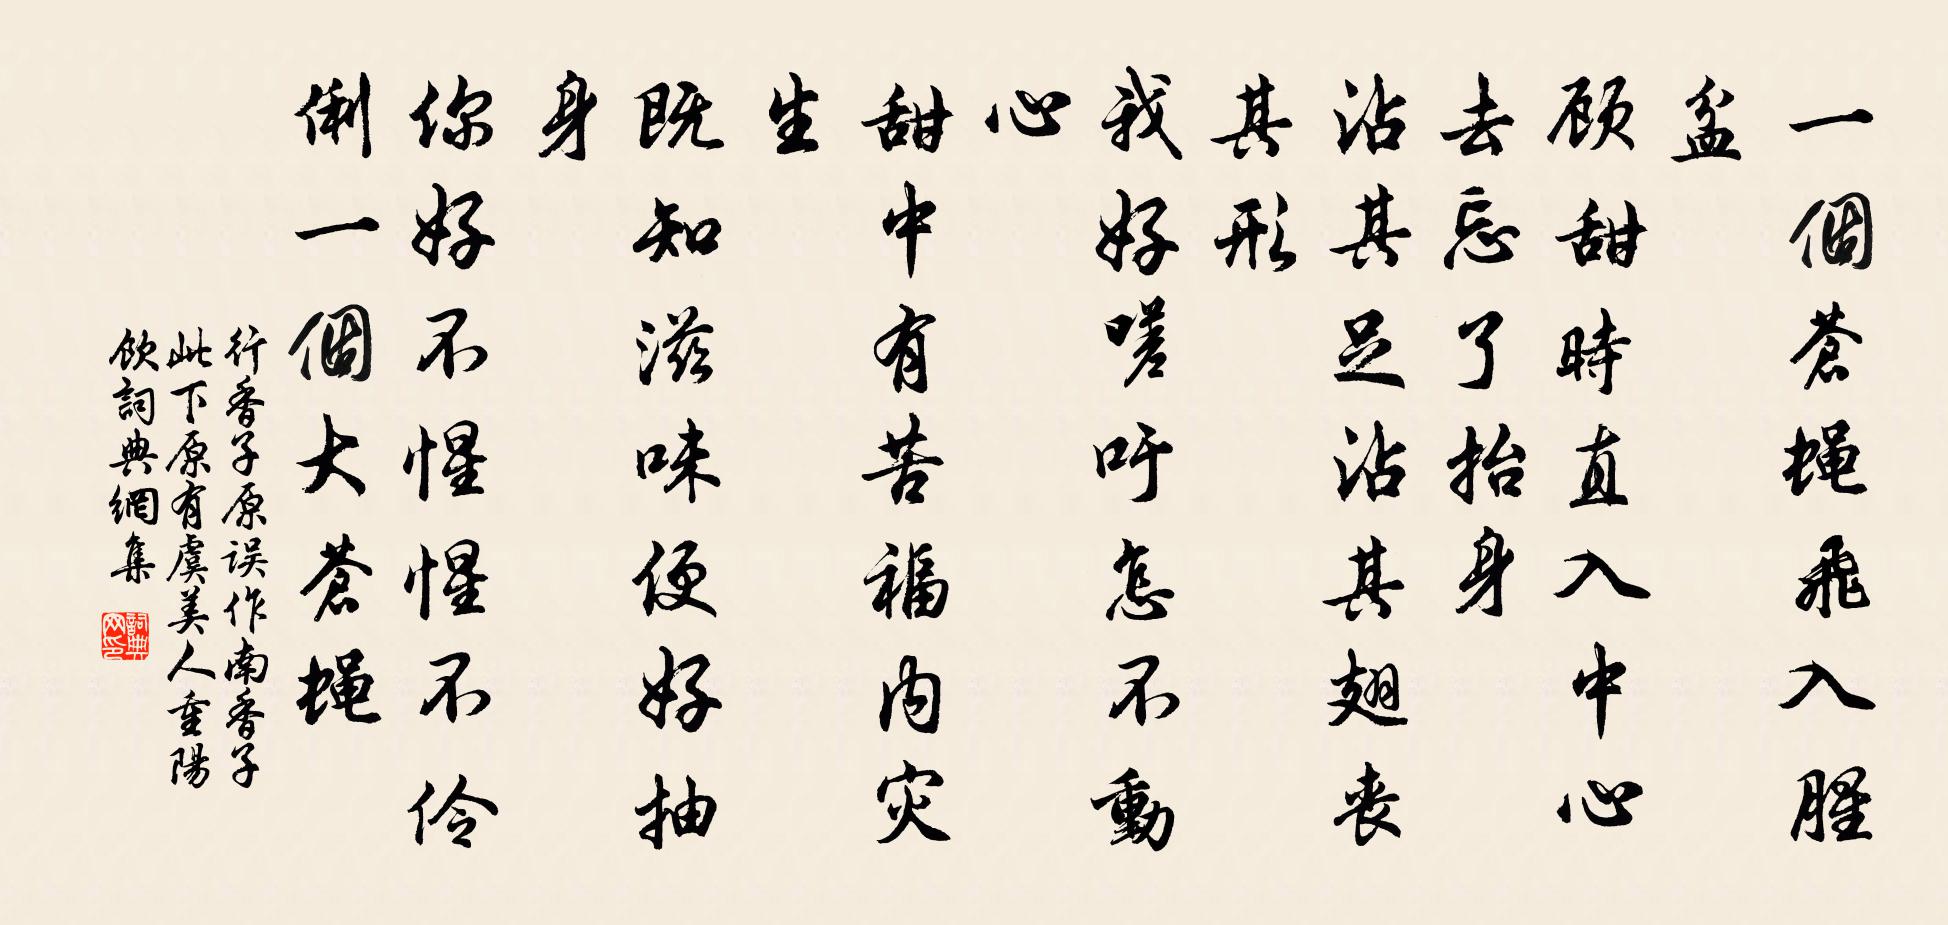 一個蒼蝇飛入腥
盆
顾甜時直入中心
去忘了抬身
沾其足沾其翅丧
其形
我好嗟吁怎不動
心
甜中有苦福内灾
生
既知滋味便好抽
身
你好不惺惺不伶
俐一個大蒼蝇
行香子原误作南香子
此下原有虞美人重陽
飲詞典網集
詞典网印